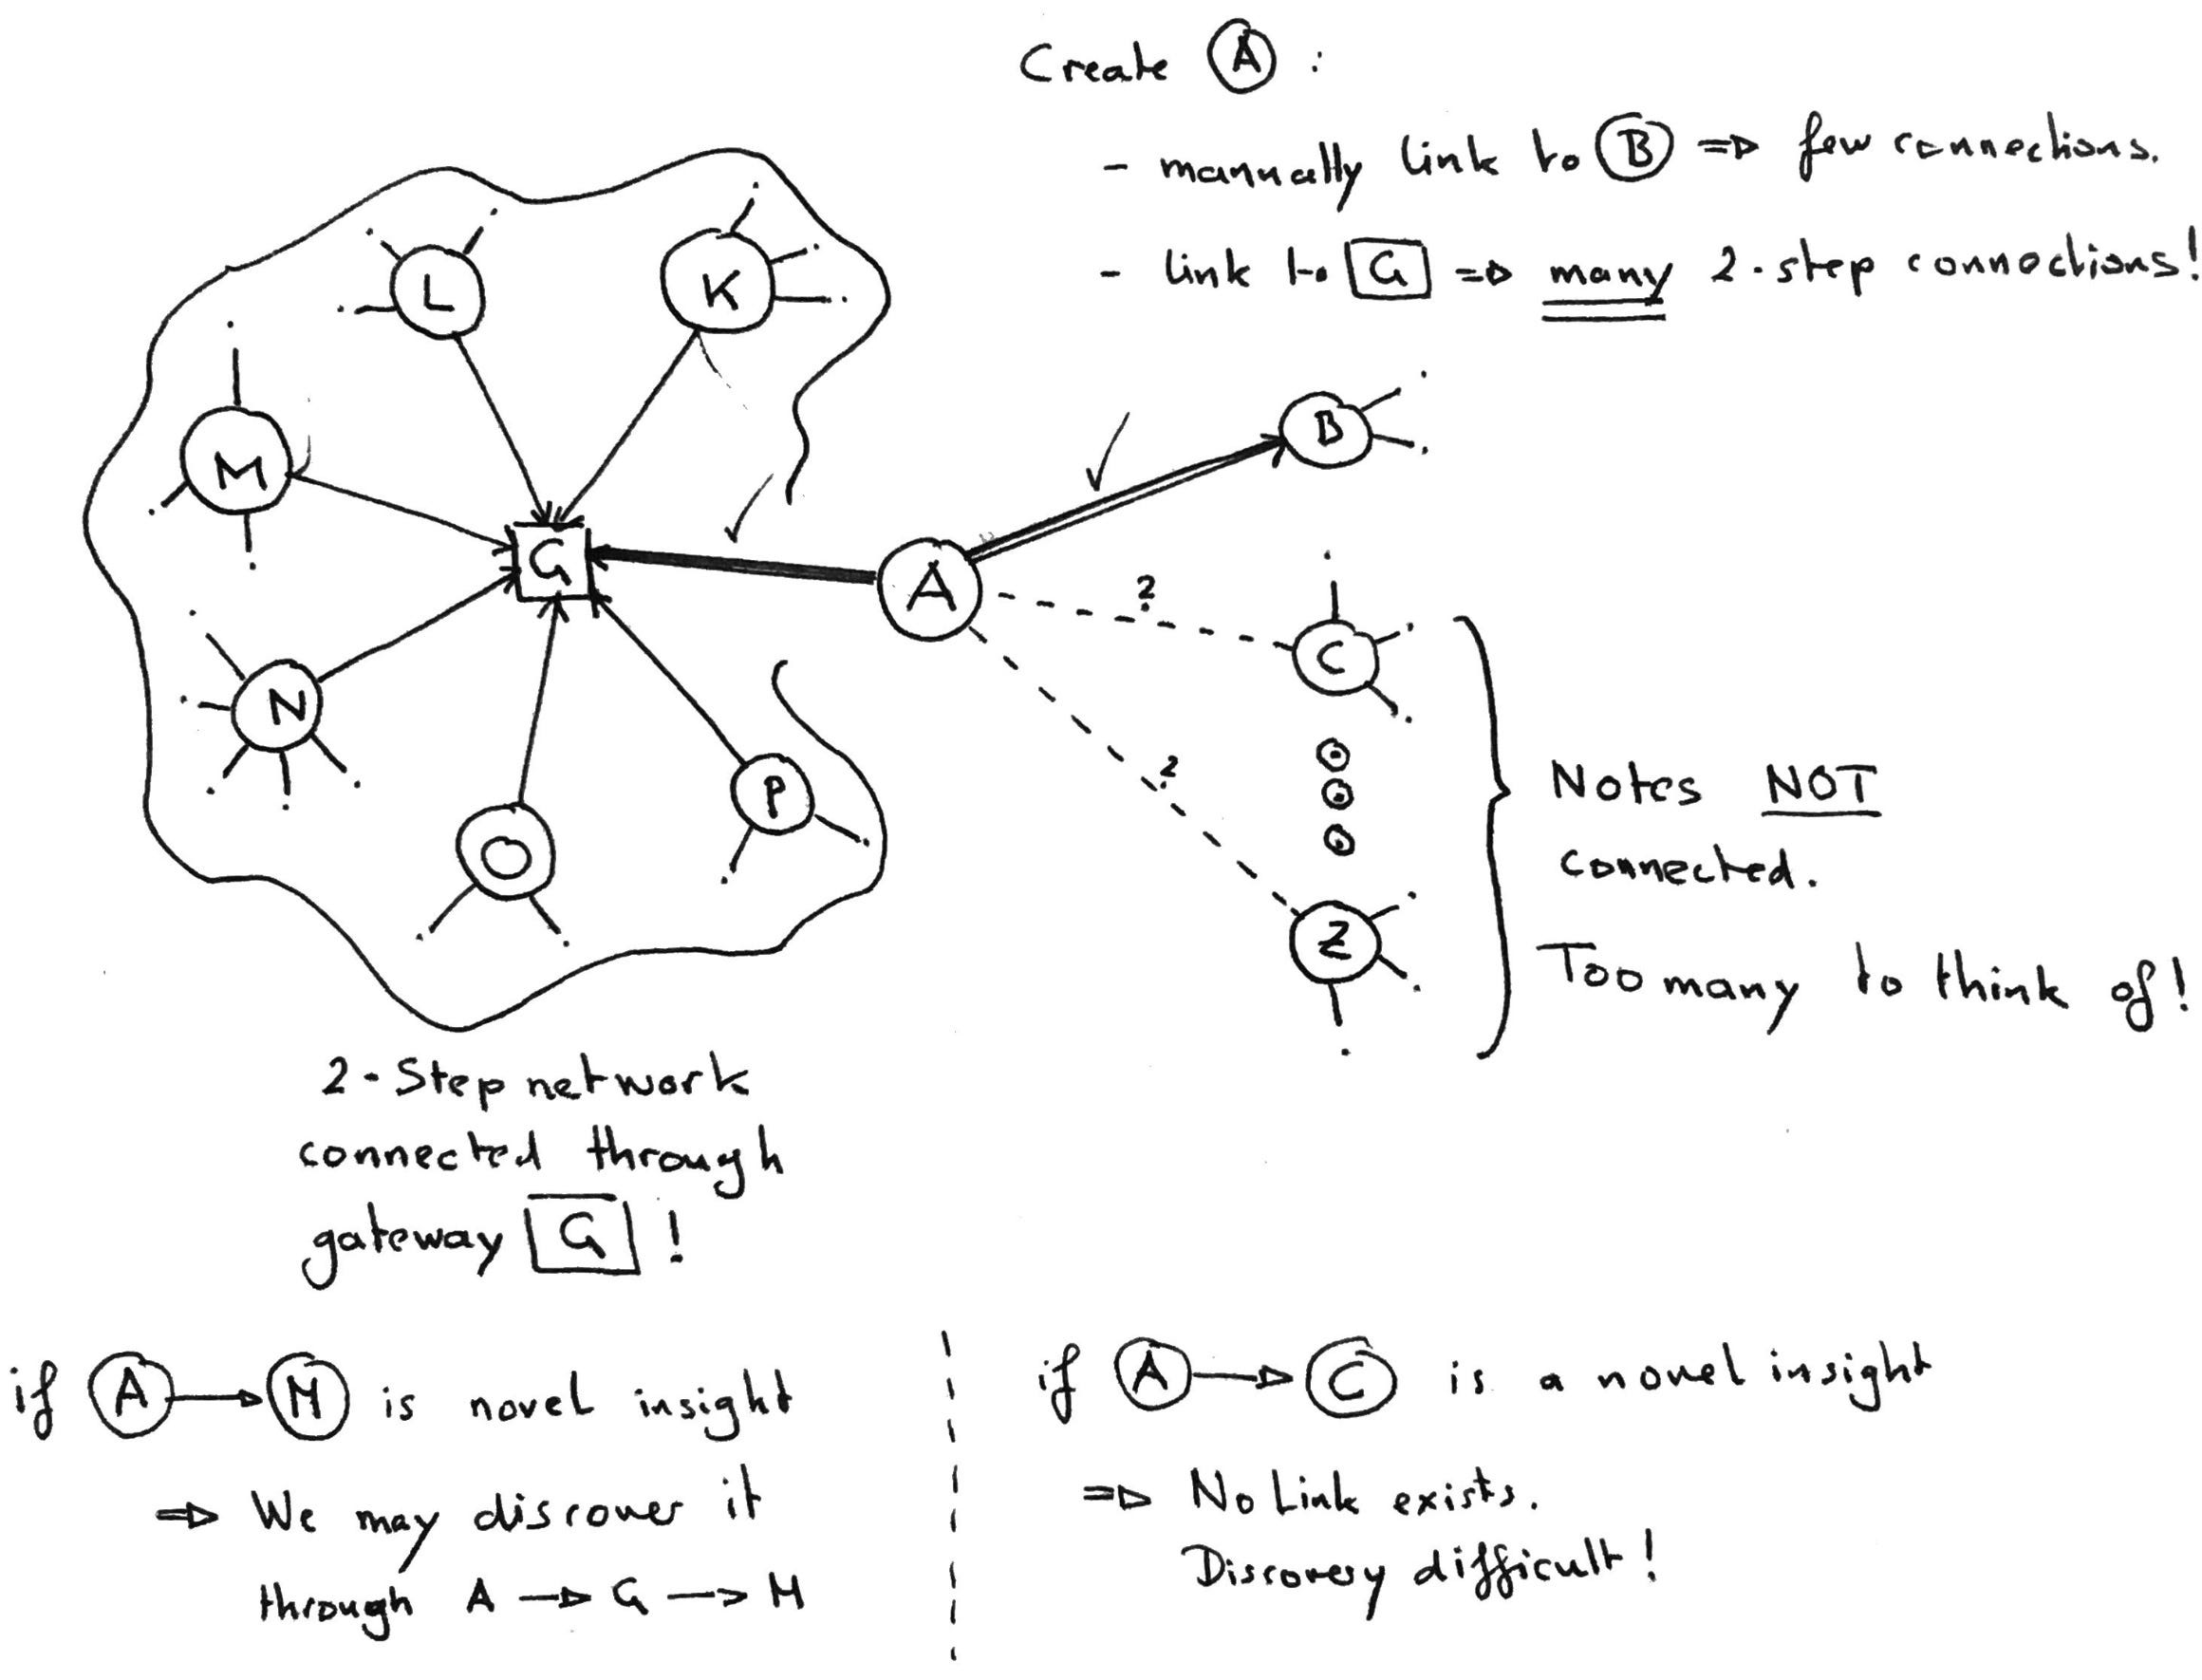 Create A :
- manually link to B ⇒ few connections.
- link to G ⇒ many 2-step connections!
L
K
M
B
G
A
?
C
N
?
P
O
Z
Notes NOT
connected.
Too many to think of!
2-Step network
connected through
gateway G !
if A → M is novel insight
⇒ We may discover it
through A → G → M
if A → C is a novel insight
⇒ No Link exists.
Discovery difficult!